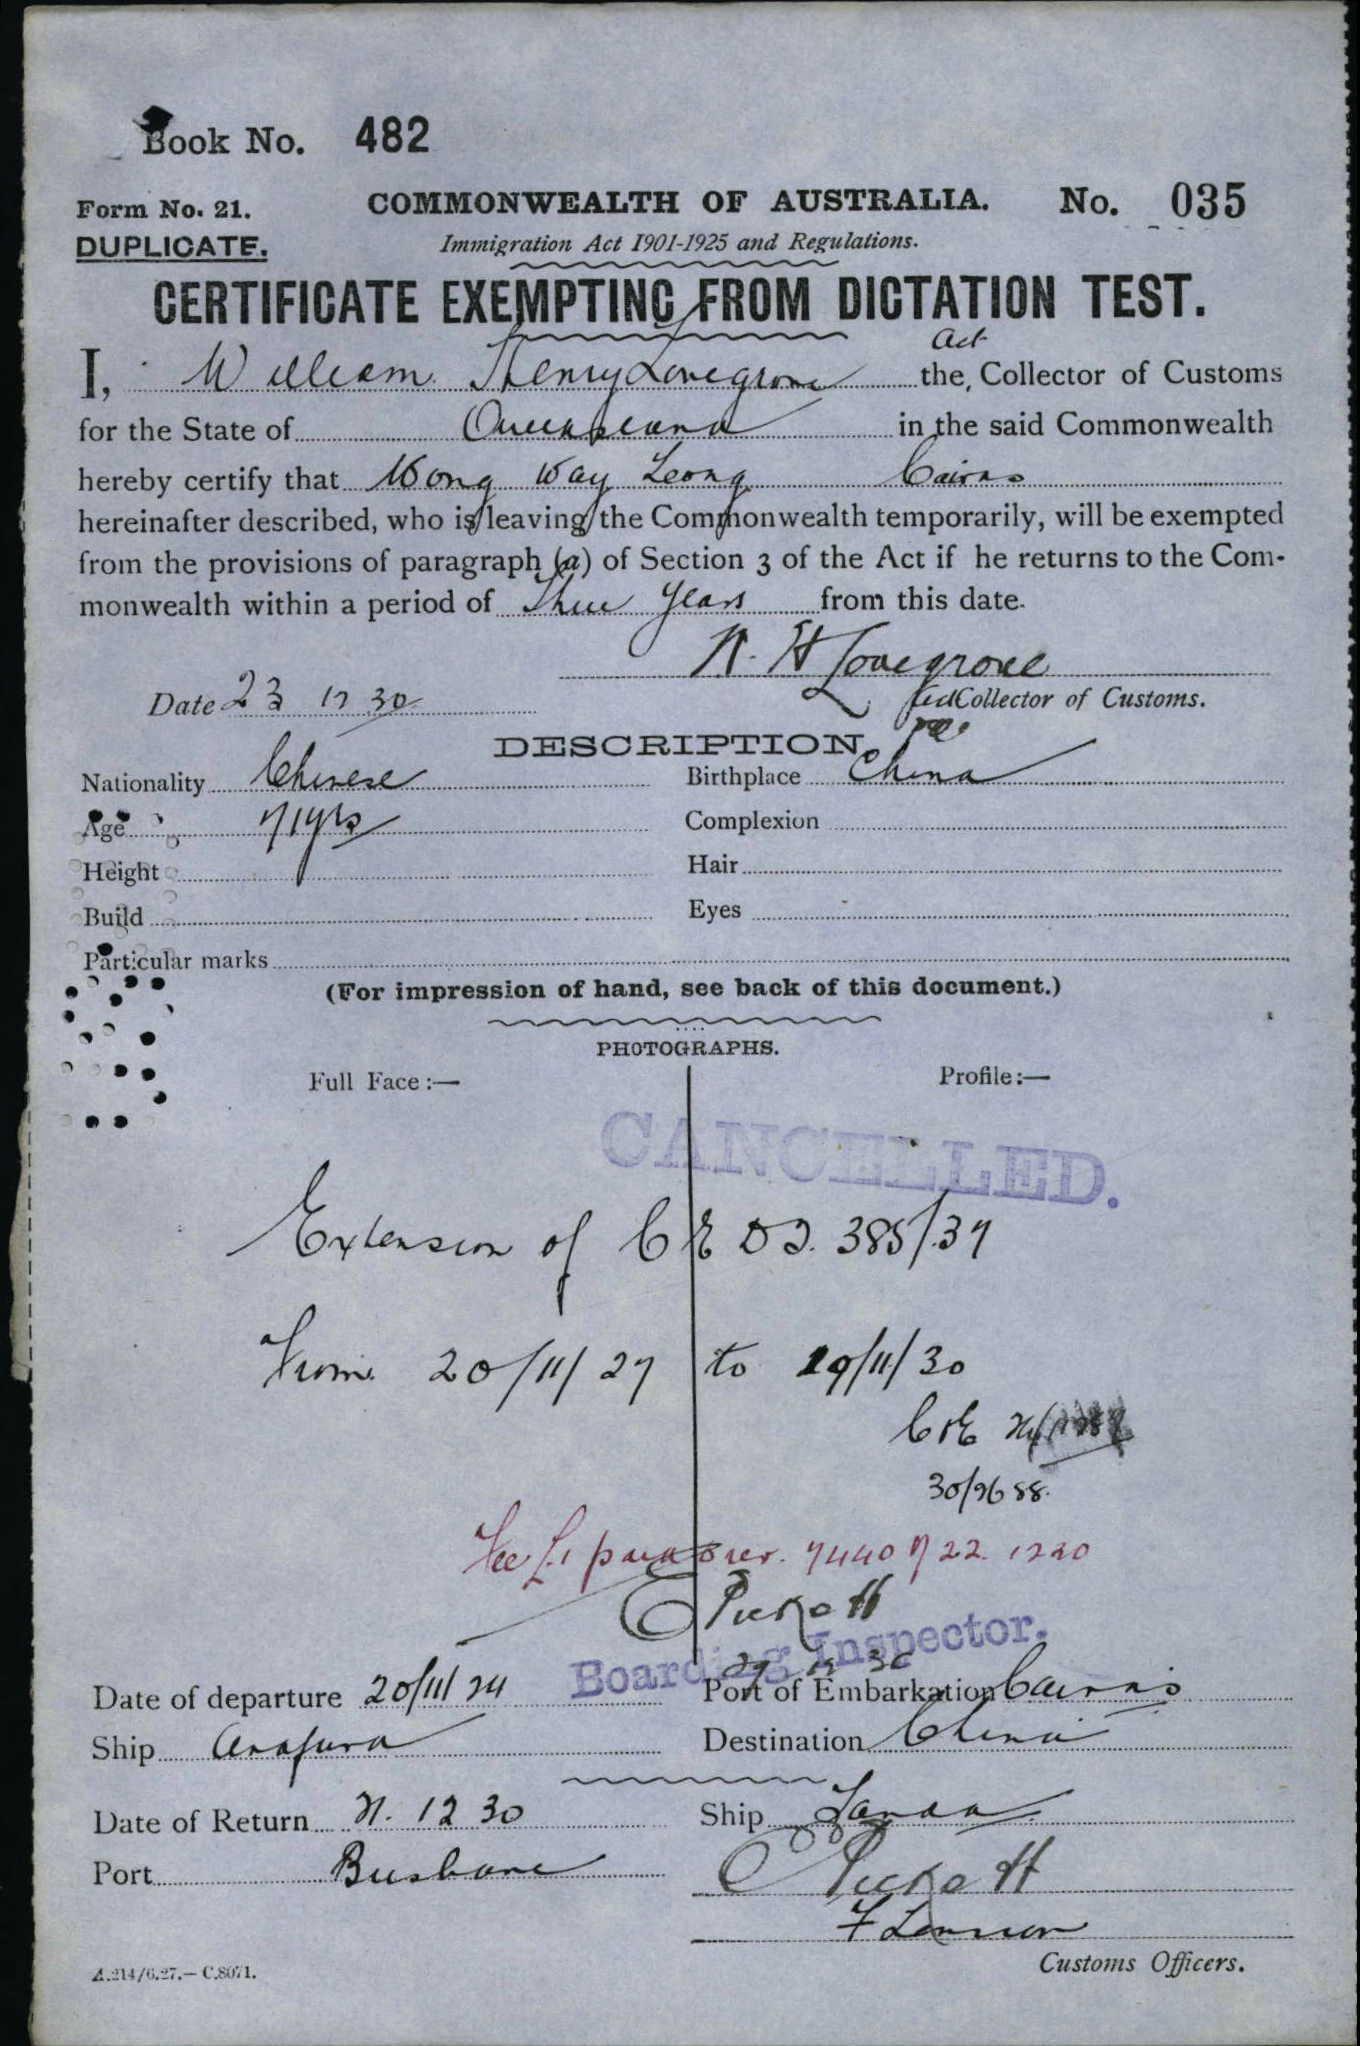 Book No. 482
Form No. 21. COMMONWEALTH OF AUSTRALIA. No. 035
DUPLICATE. Immigration Act 1901-1925 and Regulations.
CERTIFICATE EXEMPTING FROM DICTATION TEST.
Act
I, William Henry Lovegrove the Collector of Customs
for the State of Queensland in the said Commonwealth
hereby certify that Wong Way Leong Cairns
hereinafter described, who is leaving the Commonwealth temporarily, will be exempted
from the provisions of paragraph (a) of Section 3 of the Act if he returns to the Com-
monwealth within a period of Three Years from this date.
W. H Lovegrove
Date 23 12 30 Collector of Customs.
DESCRIPTION.
Nationality Chinese Birthplace China
Age 71yrs Complexion
Height Hair
Build Eyes
Particular marks
(For impression of hand, see back of this document.)
PHOTOGRAPHS.
Full Face:— Profile:—
CANCELLED.
Extension of C E D T. 385/.37
From 20/11/27 to 19/11/30
C & E
30/9688.
Fee £1 paid rec. 7440 of 22. 12 30
E Pickett
Boarding Inspector.
Date of departure 20/11/24 Port of Embarkation Cairns
Ship Arafura Destination China
Date of Return 21. 12 30 Ship Tanda
Port Brisbane E Pickett
Customs Officers.
A.214/6.27.—C.8071.